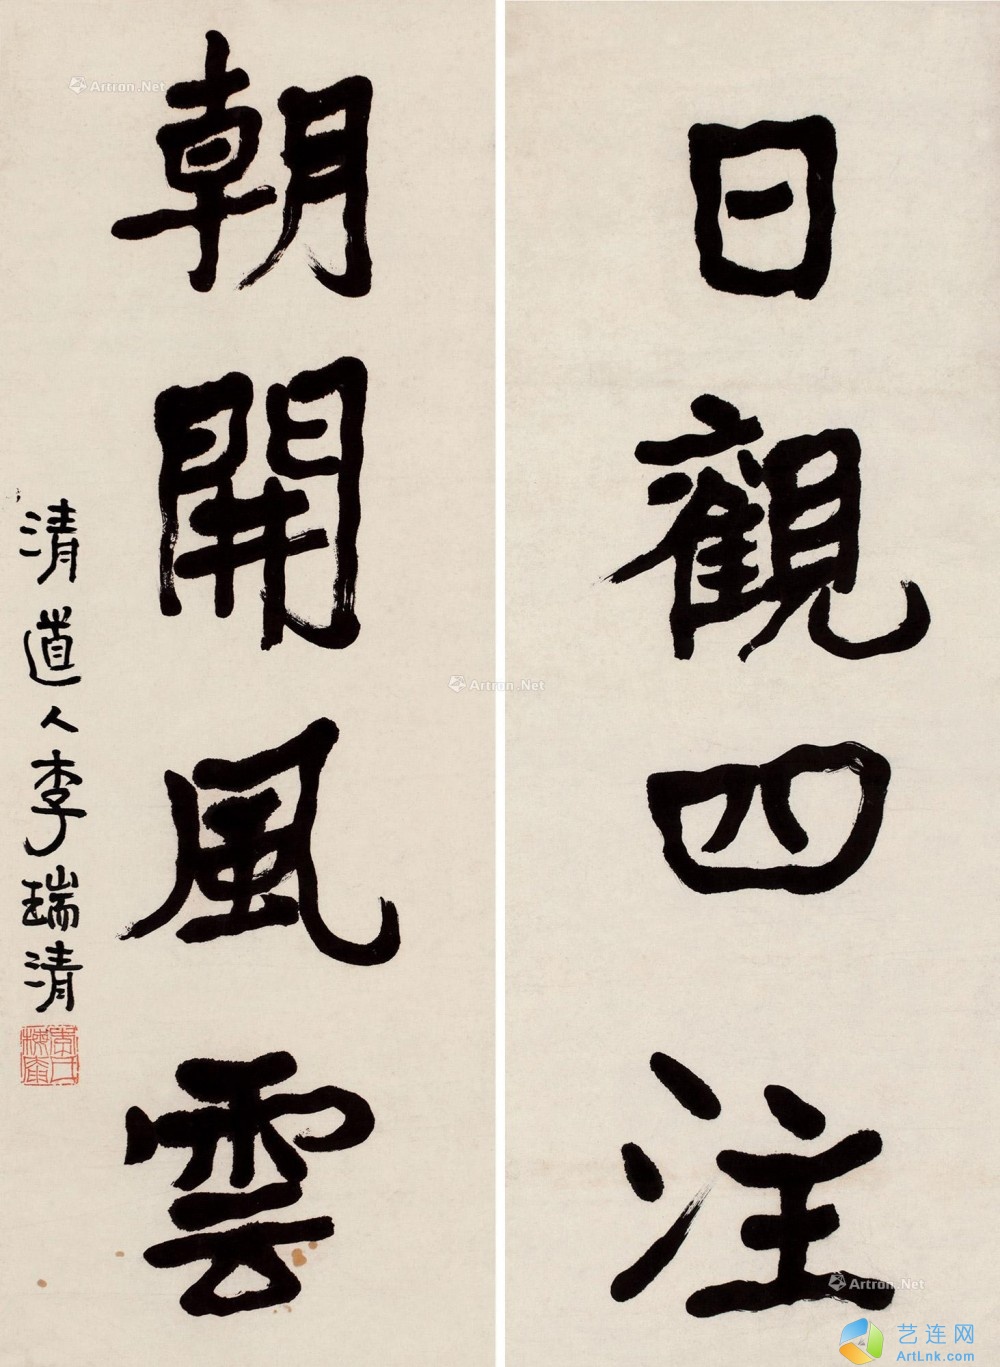 日觀四注
朝開風雲
清道人李瑞清
Artron.Net
Artron.Net
Artron.Net
艺连网
ArtLnk.com